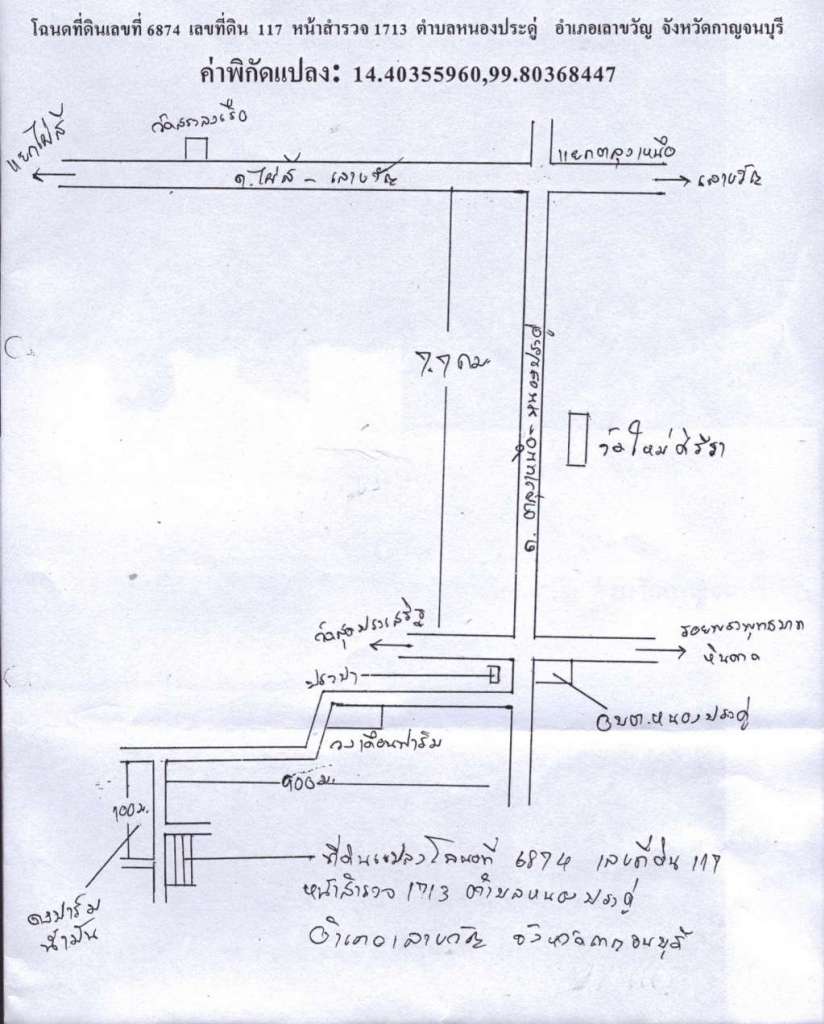 โฉนดที่ดินเลขที่ 6874 เลขที่ดิน 117 หน้าสำรวจ 1713 ตำบลหนองประดู่ อำเภอเลาขวัญ จังหวัดกาญจนบุรี
ค่าพิกัดแปลง: 14.40355960,99.80368447
วัดสระลงเรือ
แยกไผ่สี
แยกตลุงเหนือ
ถ.ไผ่สี - เลาขวัญ
เลาขวัญ
7.7 กม.
หนองประดู่
วัดใหม่ศิริธา
วัดสุขประเสริฐ
รอยพระพุทธบาท
หินลาด
ประปา
อบต.หนองประดู่
วงเดือนฟาร์ม
900 ม.
100 ม.
ที่ดินแปลงโฉนดที่ 6874 เลขที่ดิน 117
หน้าสำรวจ 1713 ตำบลหนองประดู่
อำเภอเลาขวัญ จังหวัดกาญจนบุรี
ดงปาล์ม
น้ำมัน